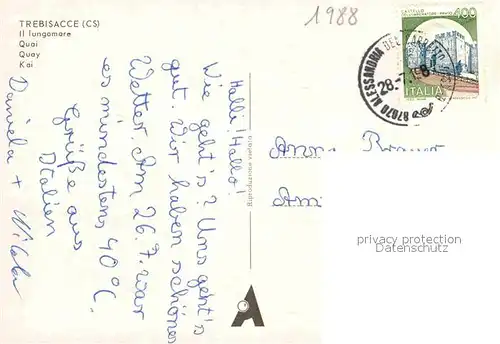 TREBISACCE (CS)
Il lungomare
Quai
Quay
Kai
1988
400
ITALIA
87070 ALESSANDRIA DEL CARRETTO
28.-7.
Halli! Hallo!
Wie geht's? Uns geht's
gut. Wir haben schönes
Wetter. Am 26.7. war
es mindestens 40°C.
Grüße aus
Italien
Daniela +
privacy protection
Datenschutz
A